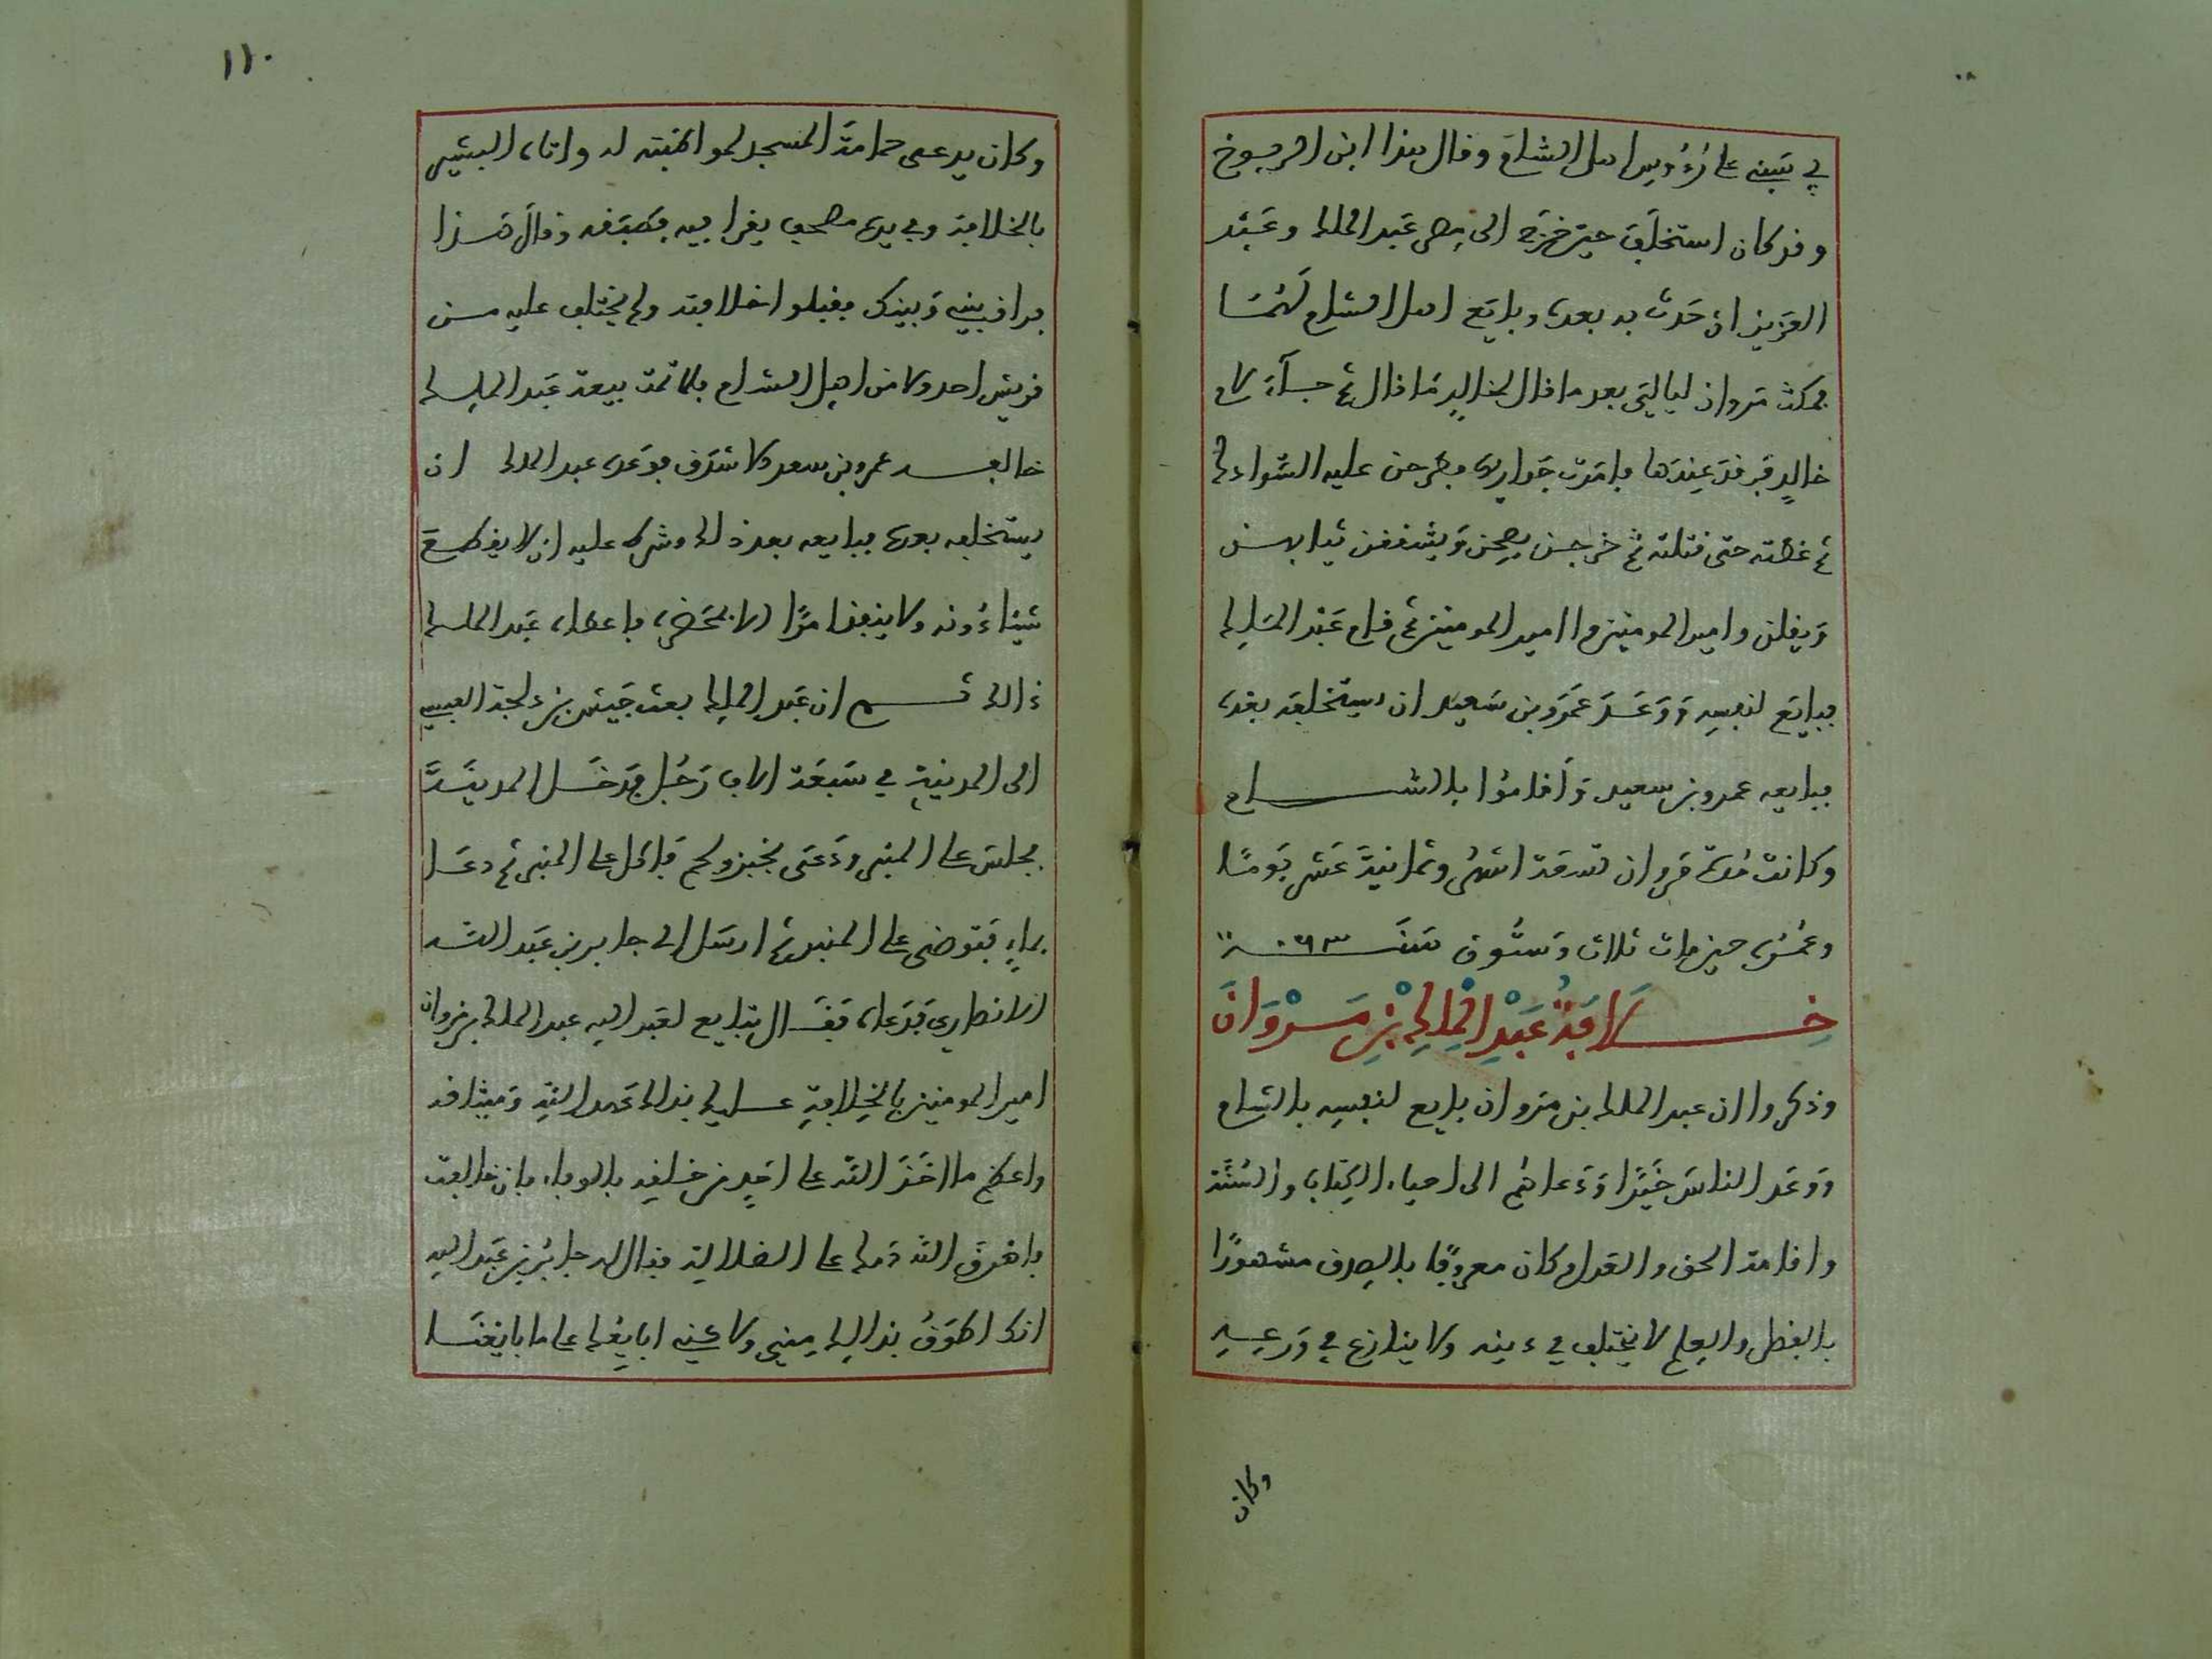 في بيتيه على رؤوس اهل الشام وقال هذا ابن
وقد كان استخلف حين خرج الى مصر عبد الملك وعبد
العزيز ان حدث به بعده وبايع اهل الشام لهما
فمكث مروان ليالي بعد ما قال لخالد ما قال ثم جاء لام
خالد فرقد عندها فامرت جواريها فطرحن عليه الشواذك
ثم غطته حتى قتلته ثم خرجن يصحن ويشققن ثيابهن
ويقلن وامير المومنين وا امير المومنين ثم قام عبد الملك
فبايع لنفسه ووعد عمرو بن سعيد ان يستخلفه بعده
فبايعه عمرو بن سعيد واقاموا بالشام
وكانت مدة مروان تسعة اشهر وثمانية عشر يوما
وعمره حين مات ثلاث وستون سنة ٦٣
خلافة عبد الملك بن مروان
وذكروا ان عبد الملك بن مروان بايع لنفسه بالشام
ووعد الناس خيرا ودعاهم الى احياء الكتاب والسنة
واقامة الحق والعدل وكان معروفا بالصدق مشهورا
بالفضل والعلم لا يختلف في دينه ولا ينازع في ورعه
وكان
١١٠
وكان يدعى حمامة المسجد لمواظبته له واتاه البشير
بالخلافة وفي يده مصحف يقرا فيه فصفقه وقال هذا
فراق بيني وبينك فقبلوا خلافته ولم يختلف عليه من
قريش احد ولا من اهل الشام فلما تمت بيعة عبد الملك
خالفه عمرو بن سعد الاشدق فوعده عبد الملك ان
يستخلفه بعده فبايعه بعد ذلك وشرط عليه ان لا يقطع
شيئا دونه ولا ينفذ امرا الا بمحضره فاعطاه عبد الملك
ذالك ثم ان عبد الملك بعث حبيش بن دلجة القيسي
الى المدينة في سبعة الاف رجل فدخل المدينة
فجلس على المنبر ودعى بخبز ولحم فاكل على المنبر ثم دعا
بماء فتوضى على المنبر ثم ارسل الى جابر بن عبد الله
الانصاري فدعاه فقال تبايع لعبد الله عبد الملك بن مروان
امير المومنين بالخلافة عليك بذالك عهد الله وميثاقه
واعظم ما اخذ الله على احد من خلقه بالوفاء فان خالفت
فاهرق الله دمك على الضلالة فقال له جابر بن عبد الله
انك اطوق بذالك مني ولاكني ابايعك على ما بايعنا